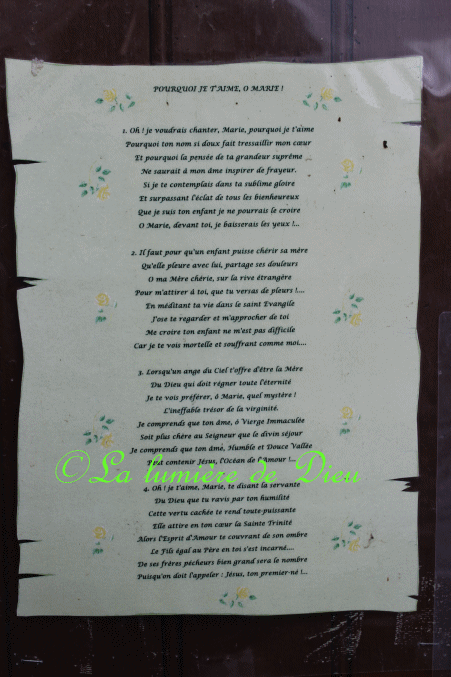 POURQUOI JE T'AIME, O MARIE !
1. Oh ! je voudrais chanter, Marie, pourquoi je t'aime
Pourquoi ton nom si doux fait tressaillir mon cœur
Et pourquoi la pensée de ta grandeur suprême
Ne saurait à mon âme inspirer de frayeur.
Si je te contemplais dans ta sublime gloire
Et surpassant l'éclat de tous les bienheureux
Que je suis ton enfant je ne pourrais le croire
O Marie, devant toi, je baisserais les yeux !...
2. Il faut pour qu'un enfant puisse chérir sa mère
Qu'elle pleure avec lui, partage ses douleurs
O ma Mère chérie, sur la rive étrangère
Pour m'attirer à toi, que tu versas de pleurs !....
En méditant ta vie dans le saint Evangile
J'ose te regarder et m'approcher de toi
Me croire ton enfant ne m'est pas difficile
Car je te vois mortelle et souffrant comme moi....
3. Lorsqu'un ange du Ciel t'offre d'être la Mère
Du Dieu qui doit régner toute l'éternité
Je te vois préférer, ô Marie, quel mystère !
L'ineffable trésor de la virginité.
Je comprends que ton âme, ô Vierge Immaculée
Soit plus chère au Seigneur que le divin séjour
Je comprends que ton âme, Humble et Douce Vallée
Peut contenir Jésus, l'Océan de l'Amour !...
©La lumière de Dieu
4. Oh ! je t'aime, Marie, te disant la servante
Du Dieu que tu ravis par ton humilité
Cette vertu cachée te rend toute-puissante
Elle attire en ton cœur la Sainte Trinité
Alors l'Esprit d'Amour te couvrant de son ombre
Le Fils égal au Père en toi s'est incarné....
De ses frères pécheurs bien grand sera le nombre
Puisqu'on doit l'appeler : Jésus, ton premier-né !...